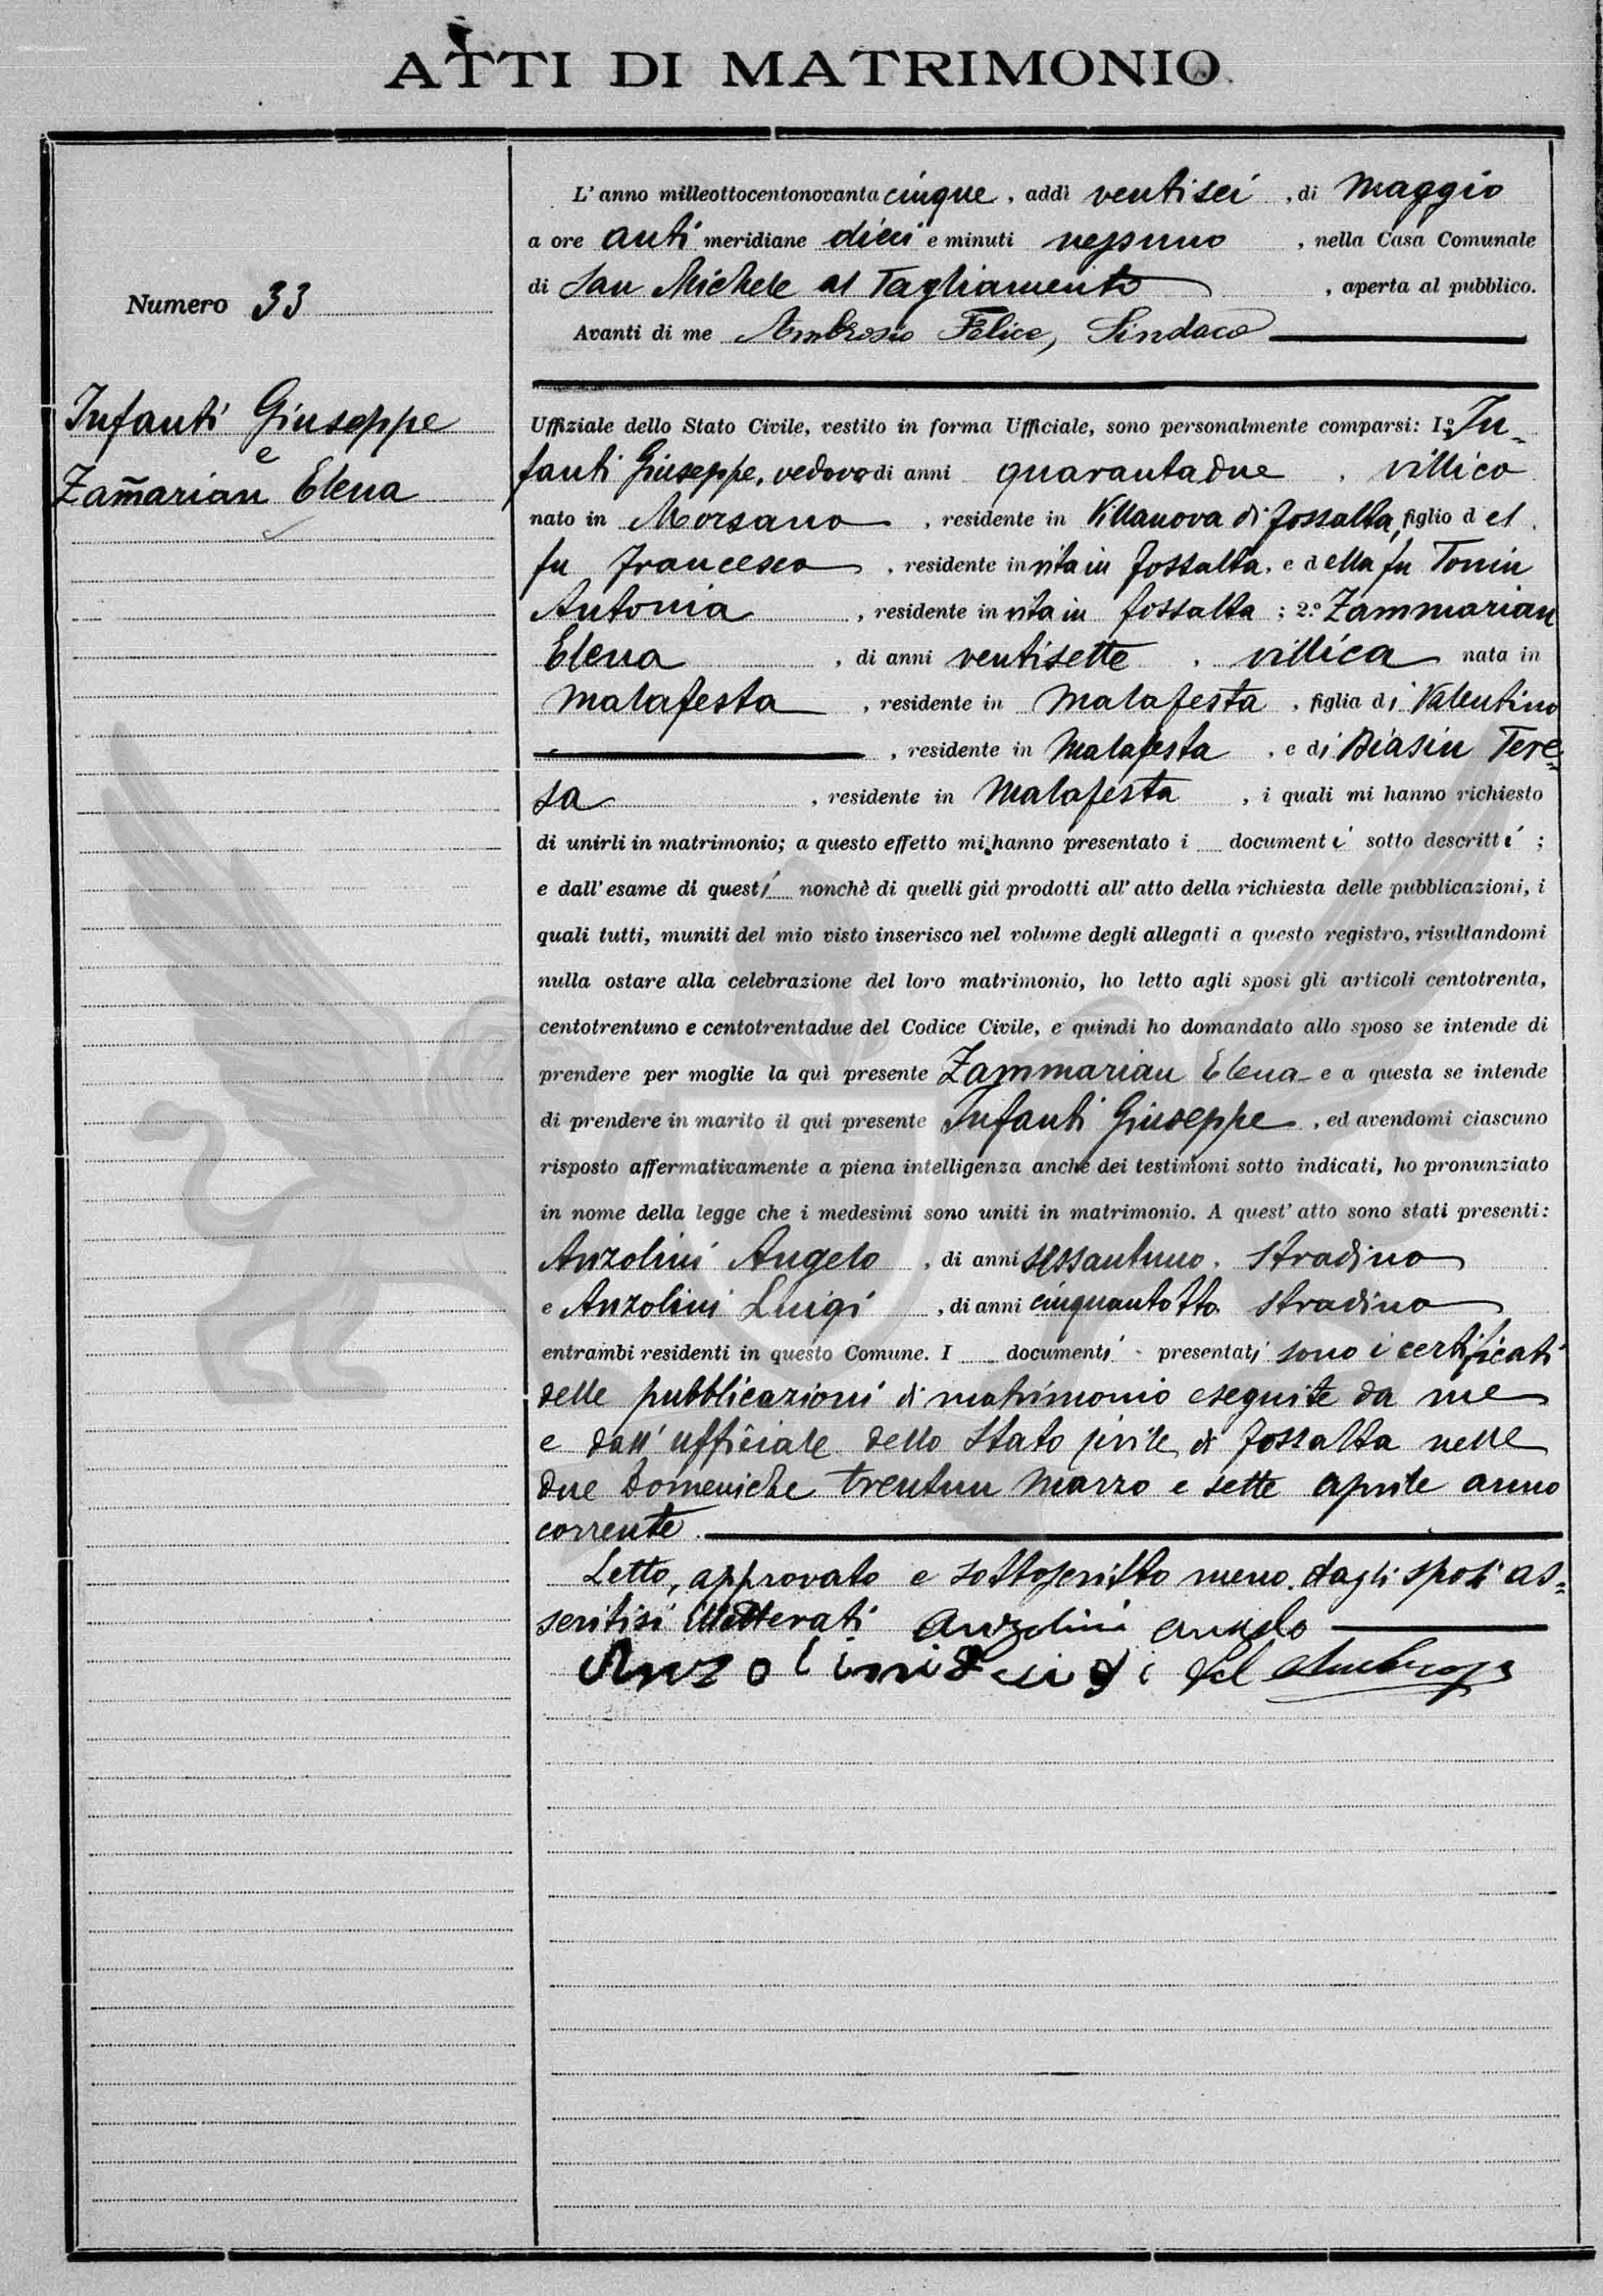 ATTI DI MATRIMONIO
Numero 33
Infanti Giuseppe
e
Zam̃arian Elena
L' anno milleottocentonovanta cinque, addì ventisei, di Maggio
a ore anti meridiane dieci e minuti nessuno, nella Casa Comunale
di San Michele al Tagliamento, aperta al pubblico.
Avanti di me Ambrosio Felice, Sindaco
Uffiziale dello Stato Civile, vestito in forma Ufficiale, sono personalmente comparsi: 1.º In=
fanti Giuseppe, vedovo di anni quarantadue, villico
nato in Morsano, residente in Villanova di Fossalta, figlio del
fu Francesco, residente in vita in Fossalta, e della fu Tonin
Antonia, residente in vita in Fossalta; 2.º Zammarian
Elena, di anni ventisette, villica nata in
Malafesta, residente in Malafesta, figlia di Valentino
, residente in Malafesta, e di Biasin Tere=
sa, residente in Malafesta, i quali mi hanno richiesto
di unirli in matrimonio; a questo effetto mi hanno presentato i documenti sotto descritti;
e dall' esame di questi nonchè di quelli già prodotti all' atto della richiesta delle pubblicazioni, i
quali tutti, muniti del mio visto inserisco nel volume degli allegati a questo registro, risultandomi
nulla ostare alla celebrazione del loro matrimonio, ho letto agli sposi gli articoli centotrenta,
centotrentuno e centotrentadue del Codice Civile, e quindi ho domandato allo sposo se intende di
prendere per moglie la quì presente Zammarian Elena e a questa se intende
di prendere in marito il quì presente Infanti Giuseppe, ed avendomi ciascuno
risposto affermativamente a piena intelligenza anche dei testimoni sotto indicati, ho pronunziato
in nome della legge che i medesimi sono uniti in matrimonio. A quest' atto sono stati presenti:
Anzolini Angelo, di anni sessantuno, stradino
e Anzolini Luigi, di anni cinquantotto stradino
entrambi residenti in questo Comune. I documenti presentati sono i certificati
delle pubblicazioni di matrimonio eseguite da me
e dall' ufficiale dello Stato Civile di Fossalta nelle
due Domeniche trentun Marzo e sette aprile anno
corrente.
Letto, approvato e sottoscritto meno dagli sposi as=
seritisi illetterati Anzolini Angelo
Anzolini Luigi Fel Ambrosio